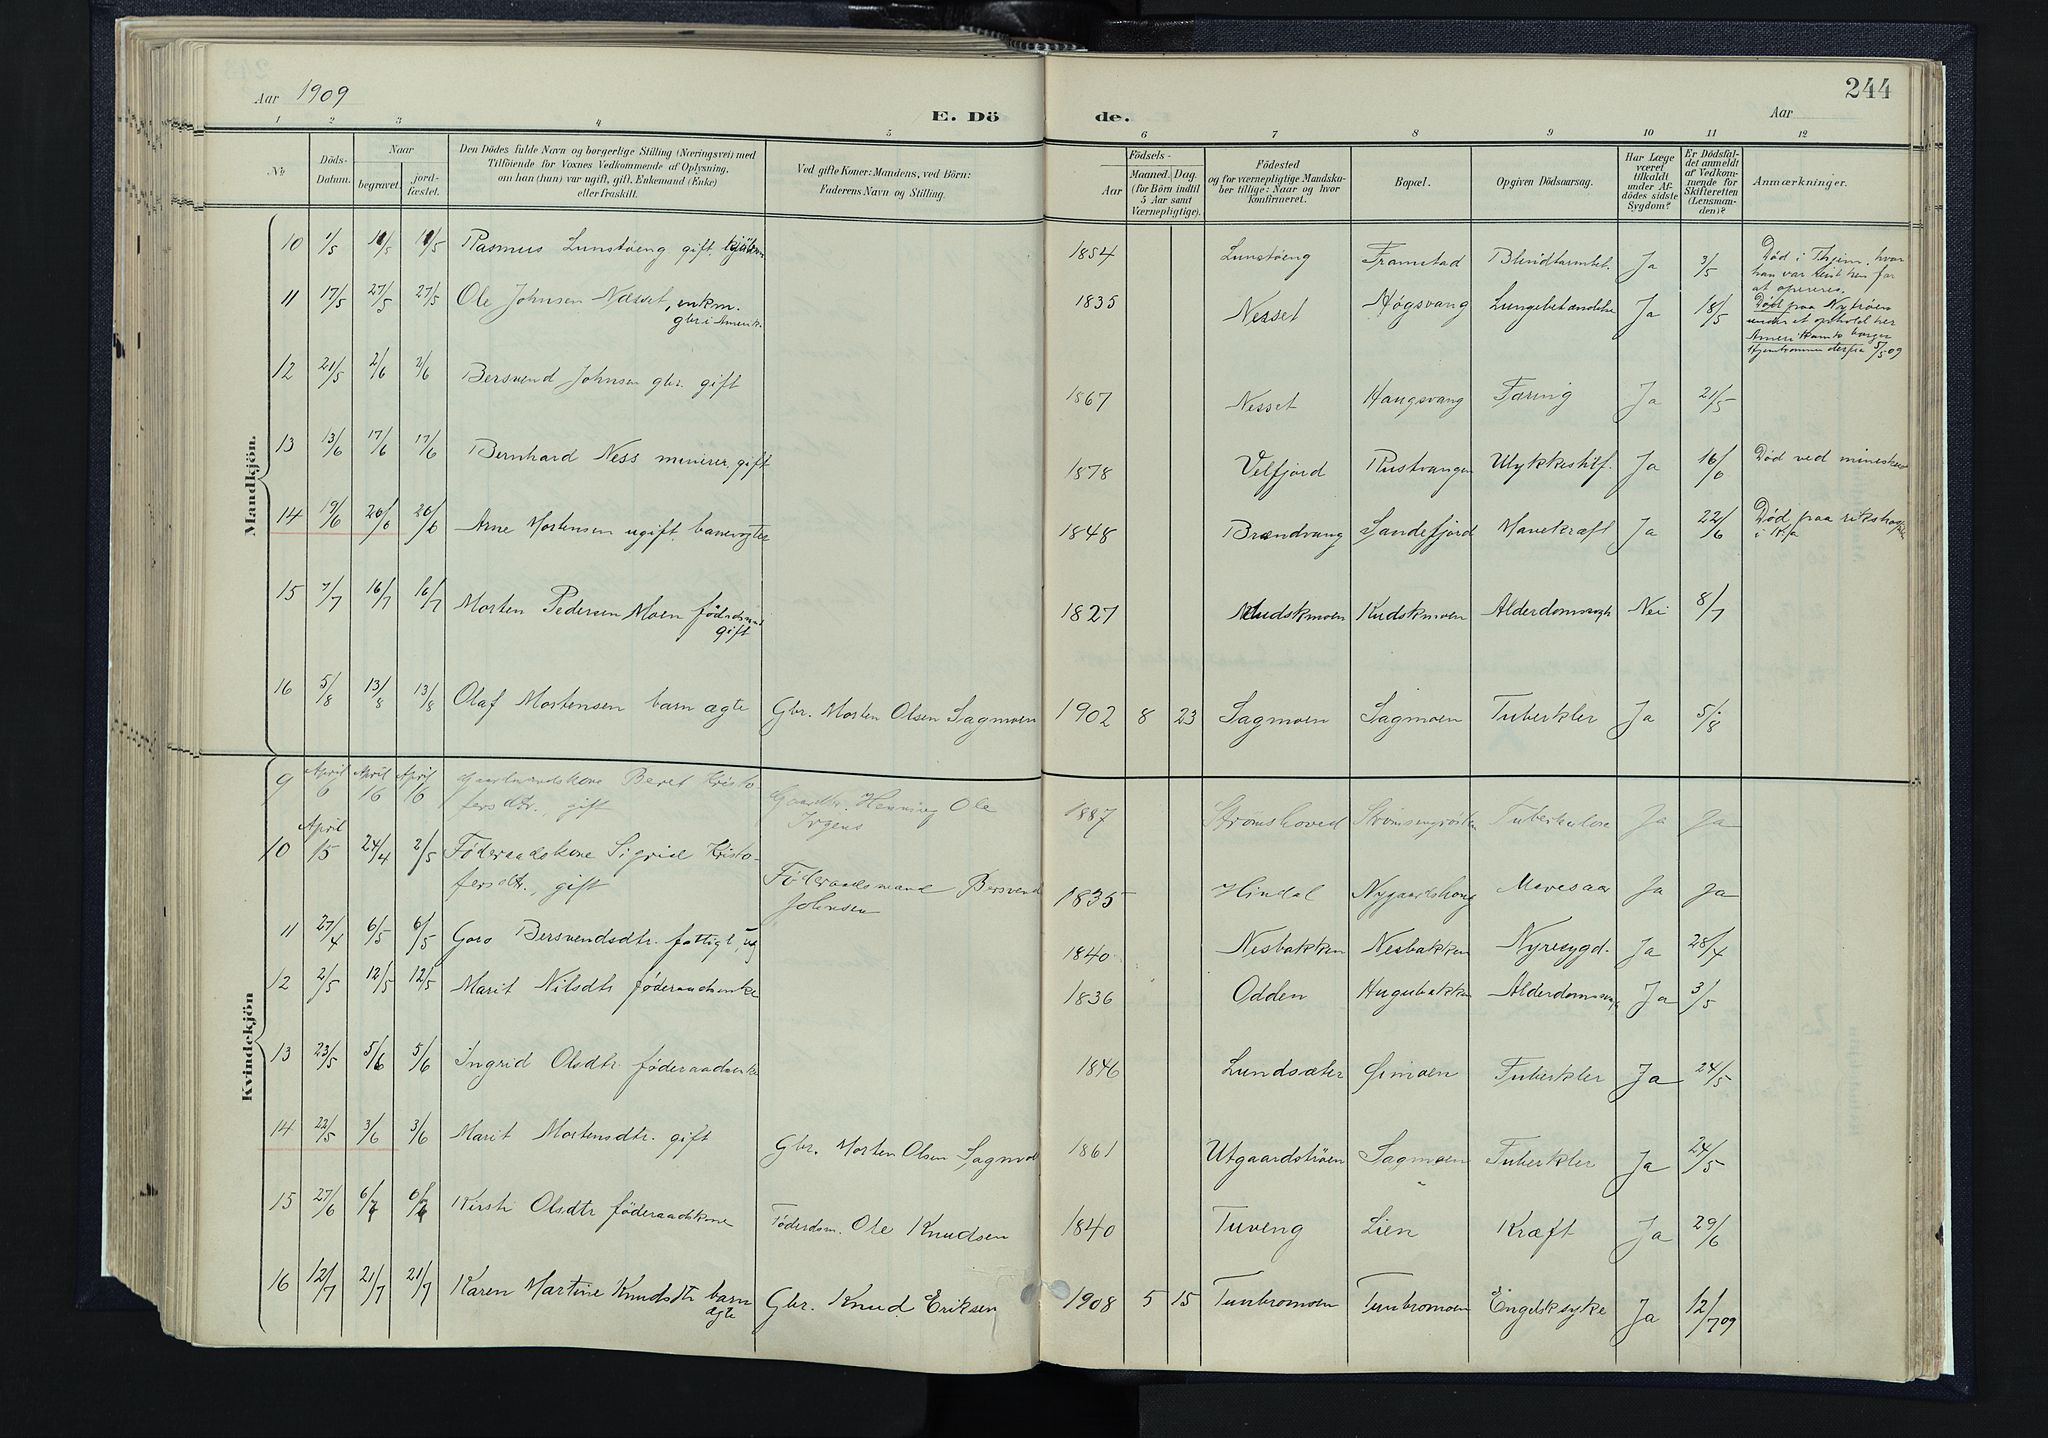 243
244
Aar 1909
E. Dö
de.
Aar
1 2 3 4 5 6 7 8 9 10 11 12
No
Döds-
Datum.
Naar
begravet.
jord-
fæstet.
Den Dödes fulde Navn og borgerlige Stilling (Næringsvei) med
Tilföiende for Voxnes Vedkommende af Oplysning,
om han (hun) var ugift, gift, Enkemand (Enke)
eller fraskilt.
Ved gifte Koner: Mandens, ved Börn:
Faderens Navn og Stilling.
Födsels-
Aar
Maaned. Dag.
(for Börn indtil
5 Aar samt
Værnepligtige).
Födested
og for værnepligtige Mandska-
ber tillige: Naar og hvor
konfirmeret.
Bopæl.
Opgiven Dödsaarsag.
Har Læge
været
tilkaldt
under Af-
dödes sidste
Sygdom?
Er Dödsfal-
det anmeldt
af Vedkom-
mende for
Skifteretten
(Lensman-
den)?
Anmærkninger.
Mandkjön.
10 1/5 11/5 11/5 Rasmus Lunstøeng gift 1854 Lunstøeng Framstad Blindtarmbet. Ja 3/5 Død i Thjem, hvor
han var reist hen for
at opereres.
11 17/5 27/5 27/5 Ole Johnsen Nesset, enkm.
gbr i Amerik. 1835 Nesset Høgsvang Lungebetændelse Ja 18/5 Død paa Nytrøen
under et ophold her
Amerikansk borger
Hjemkommen derfra 5/5 09
12 21/5 2/6 2/6 Bersvend Johnsen gbr. gift 1867 Nesset Haugsvang Tæring Ja 21/5
13 13/6 17/6 17/6 Bernhard Ness minerer, gift 1878 Velfjord Rustvangen Ulykkestilf. Ja 16/6 Død ved mineskud
14 19/6 26/6 26/6 Arne Mortensen ugift, banevogter 1848 Brændvang Sandefjord Mavekræft Ja 22/6 Død paa rikshosp.
i Kr.a
15 7/7 16/7 16/7 Morten Pedersen Moen føderdsmd
gift 1827 Kudskmoen Kudskmoen Alderdomssvagh. Nei 8/7
16 5/8 13/8 13/8 Olaf Mortensen barn ægte Gbr. Morten Olsen Sagmoen 1902 8 23 Sagmoen Sagmoen Tuberkler Ja 5/8
Kvindekjön
9 April 6 April 16 April 16 Gaardmandskone Beret Kristo
fersdtr., gift Gaardbr. Henning Ole
Irgens 1887 Strømshoved Strømsengrøsten Tuberkulose Ja Ja
10 April 15 24/4 2/5 Føderaadskone Sigrid Kristo-
fersdtr., gift Føderaadsmand Bersvend
Johnsen 1835 Hindal Nygaardshaug Mavesaar Ja Ja
11 27/4 6/5 6/5 Goro Bersvendsdtr. fattigl, ug 1840 Nesbakken Nesbakken Nyresygd. Ja 28/4
12 2/5 12/5 12/5 Marit Nilsdtr føderaadsenke 1836 Odden Hugubakken Alderdomssvag Ja 3/5
13 23/5 5/6 5/6 Ingrid Olsdtr. føderaadsenke 1846 Lundsæter Øimoen Tuberkler Ja 24/5
14 22/5 3/6 3/6 Marit Mortensdtr. gift Gbr. Morten Olsen Sagmoe 1861 Utgaardstrøen Sagmoen Tuberkler Ja 24/5
15 27/6 6/7 6/7 Kirsti Olsdtr føderaadskone Føderdsm. Ole Knudsen 1840 Tuveng Lien Kræft Ja 29/6
16 12/7 21/7 21/7 Karen Martine Knudsdtr barn
ægte Gbr. Knud Eriksen 1908 5 15 Tunbromoen Tunbromoen Engelsksyke Ja 12/7 09